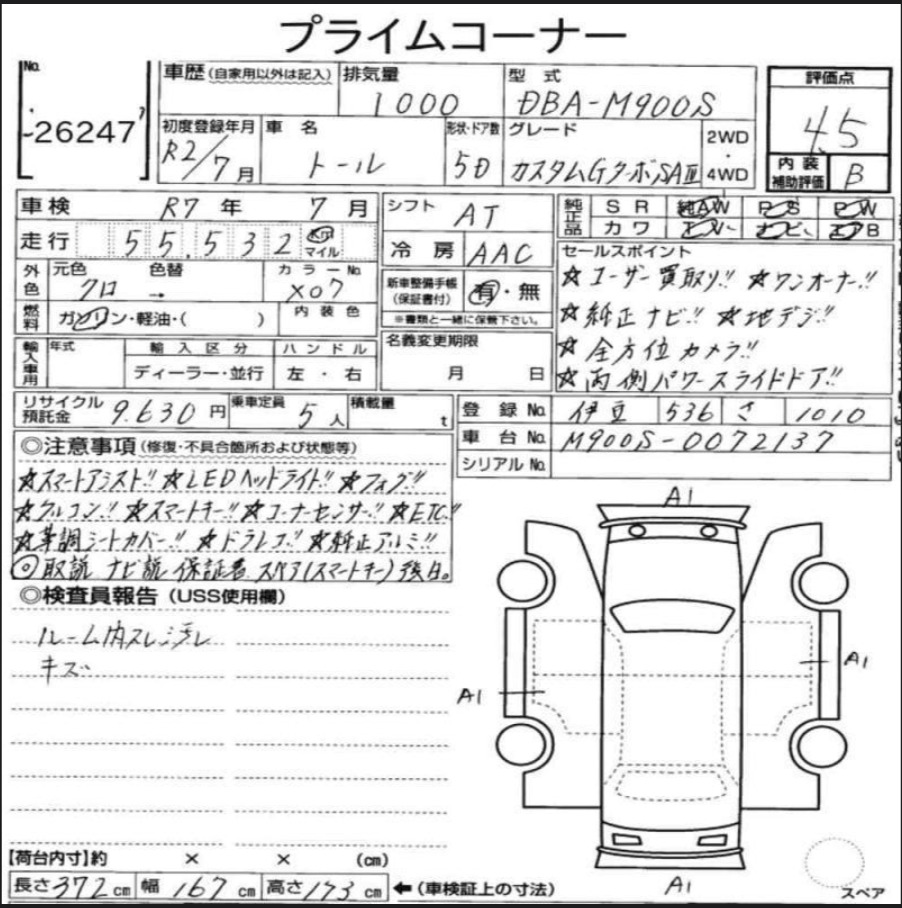 プライムコーナー
No.
-26247
車歴 (自家用以外は記入)
排気量
1000
型式
DBA-M900S
評価点
4.5
内装補助評価 B
初度登録年月
R2/7月
車名
トール
形状・ドア数
5D
グレード
カスタムGターボSAⅢ
2WD
・
4WD
車検 R7年 7月
走行 55,532 km マイル
シフト AT
冷房 AAC
純正品 SR 純AW PS PW
カワ TV ナビ エアB
外色 元色 色替 カラーNo.
クロ → X07
燃料 ガソリン・軽油・( )
内装色
新車整備手帳 (保証書付) 有・無
※書類と一緒に保管下さい。
セールスポイント
☆ユーザー買取り!! ☆ワンオーナー!!
☆純正ナビ!! ☆地デジ!!
☆全方位カメラ!!
☆両側パワースライドドア!!
輸入車用 年式 輸入区分 ハンドル
ディーラー・並行 左・右
名義変更期限
月 日
リサイクル預託金 9,630円 乗車定員 5人 積載量 t
登録No. 伊豆 536 さ 1010
車台No. M900S-0072137
シリアルNo.
◎注意事項 (修復・不具合箇所および状態等)
☆スマートアシスト!! ☆LEDヘッドライト!! ☆フォグ!!
☆クルコン!! ☆スマートキー!! ☆コーナーセンサー!! ☆ETC!!
☆革調シートカバー!! ☆ドラレコ!! ☆純正アルミ!!
◎取説 ナビ説 保証書 スペア(スマートキー)後日。
◎検査員報告 (USS使用欄)
ルーム内スレ汚レ
キズ
A1
A1
A1
A1
【荷台内寸】約 × × (cm)
長さ372cm 幅167cm 高さ173cm ←(車検証上の寸法)
スペア